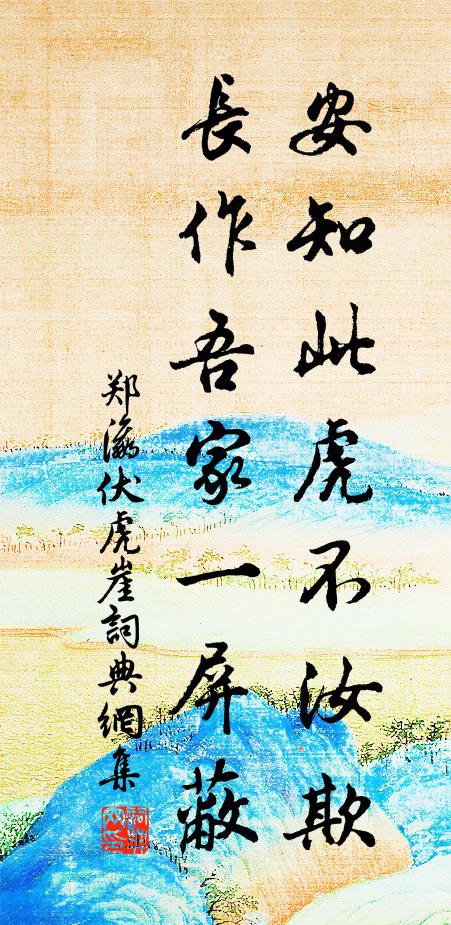 安知此虎不汝欺
長作吾家一屏蔽
郑瀛伏虎崖詞典網集